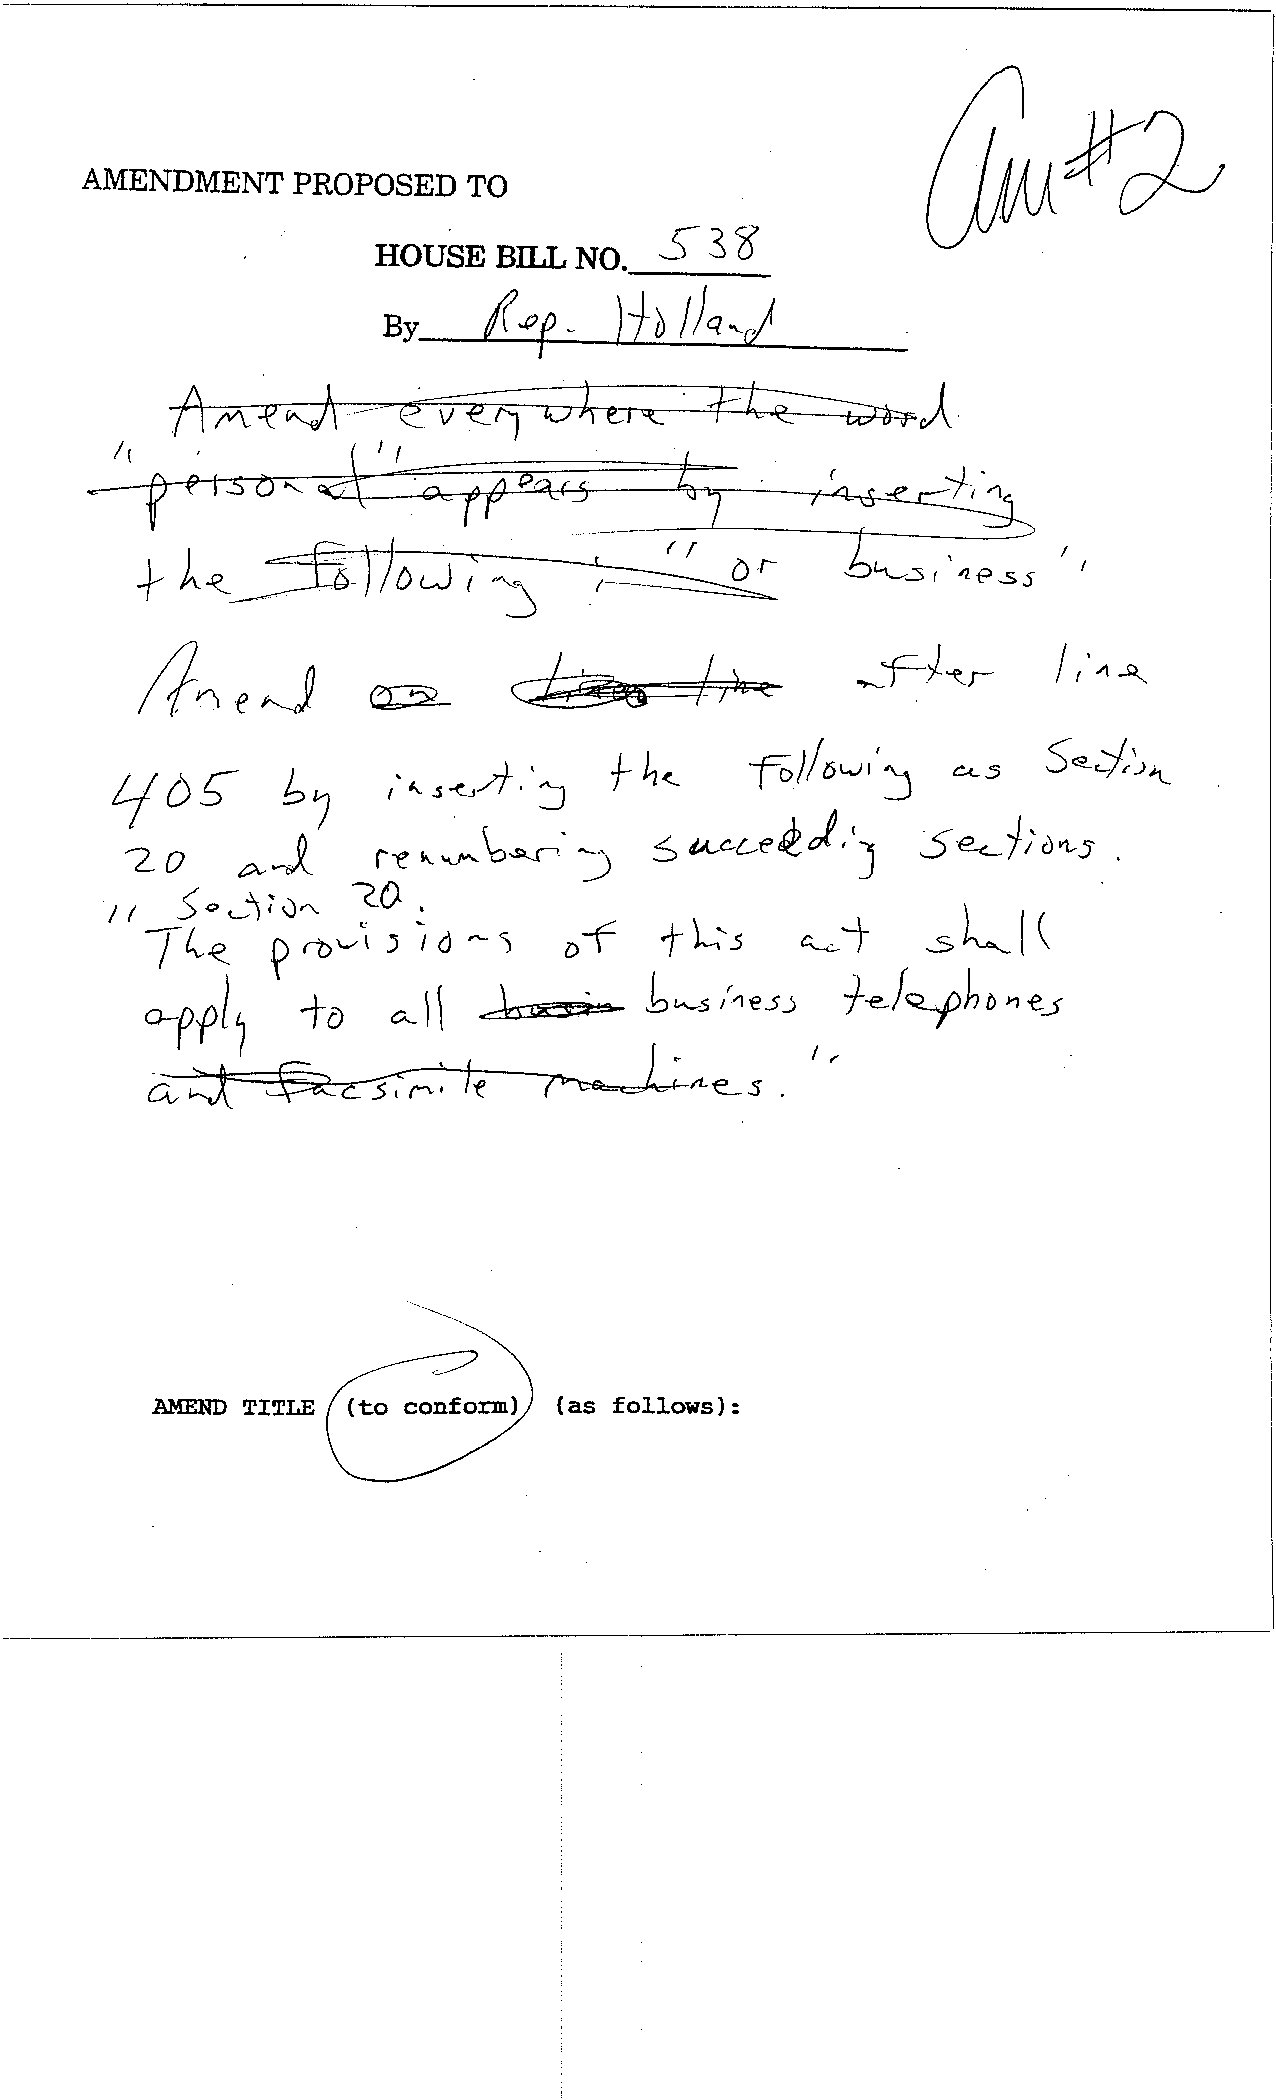 Am #2
AMENDMENT PROPOSED TO
HOUSE BILL NO. 538
By Rep. Holland
Amend everywhere the word
"personal" appears by inserting
the following: "or business"
Amend on line after line
405 by inserting the following as Section
20 and renumbering succeeding sections.
"Section 20.
The provisions of this act shall
apply to all business telephones
and facsimile machines."
AMEND TITLE (to conform) (as follows):